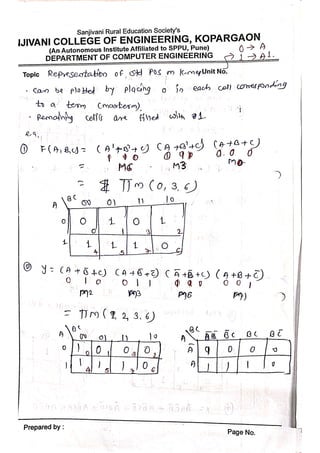 Sanjivani Rural Education Society's
IJIVANI COLLEGE OF ENGINEERING, KOPARGAON
(An Autonomous Institute Affiliated to SPPU, Pune)
0 → A
DEPARTMENT OF COMPUTER ENGINEERING
1 → A1.
Topic Representation of std POS on K.map Unit No.
• can be plotted by placing 0 in each cell corresponding
to a term (maxterm).
• Remaining cells are filled with 1.
e.g.,
① F(A,B,C) = (A'+B'+C) (A+B'+C') (A+B+C)
1 1 0 0 1 1 0 0 0
M6 M3 M0
= π m (0, 3, 6)
A BC 00 01 11 10
0 0 1 0 1
0 1 3 2
1 1 1 1 0
4 5 7 6
② y = (A+B̄+C) (A+B̄+C̄) (Ā+B̄+C) (A+B+C̄)
0 1 0 0 1 1 1 1 0 0 0 1
M2 M3 M6 M1
= π m (1, 2, 3, 6)
A BC 00 01 11 10
0 1 0 0 0
0 1 3 2
1 1 1 1 0
4 5 7 6
A BC B̄C BC BC̄
Ā 0 0 0
A 1 1 1 0
Prepared by :
Page No.